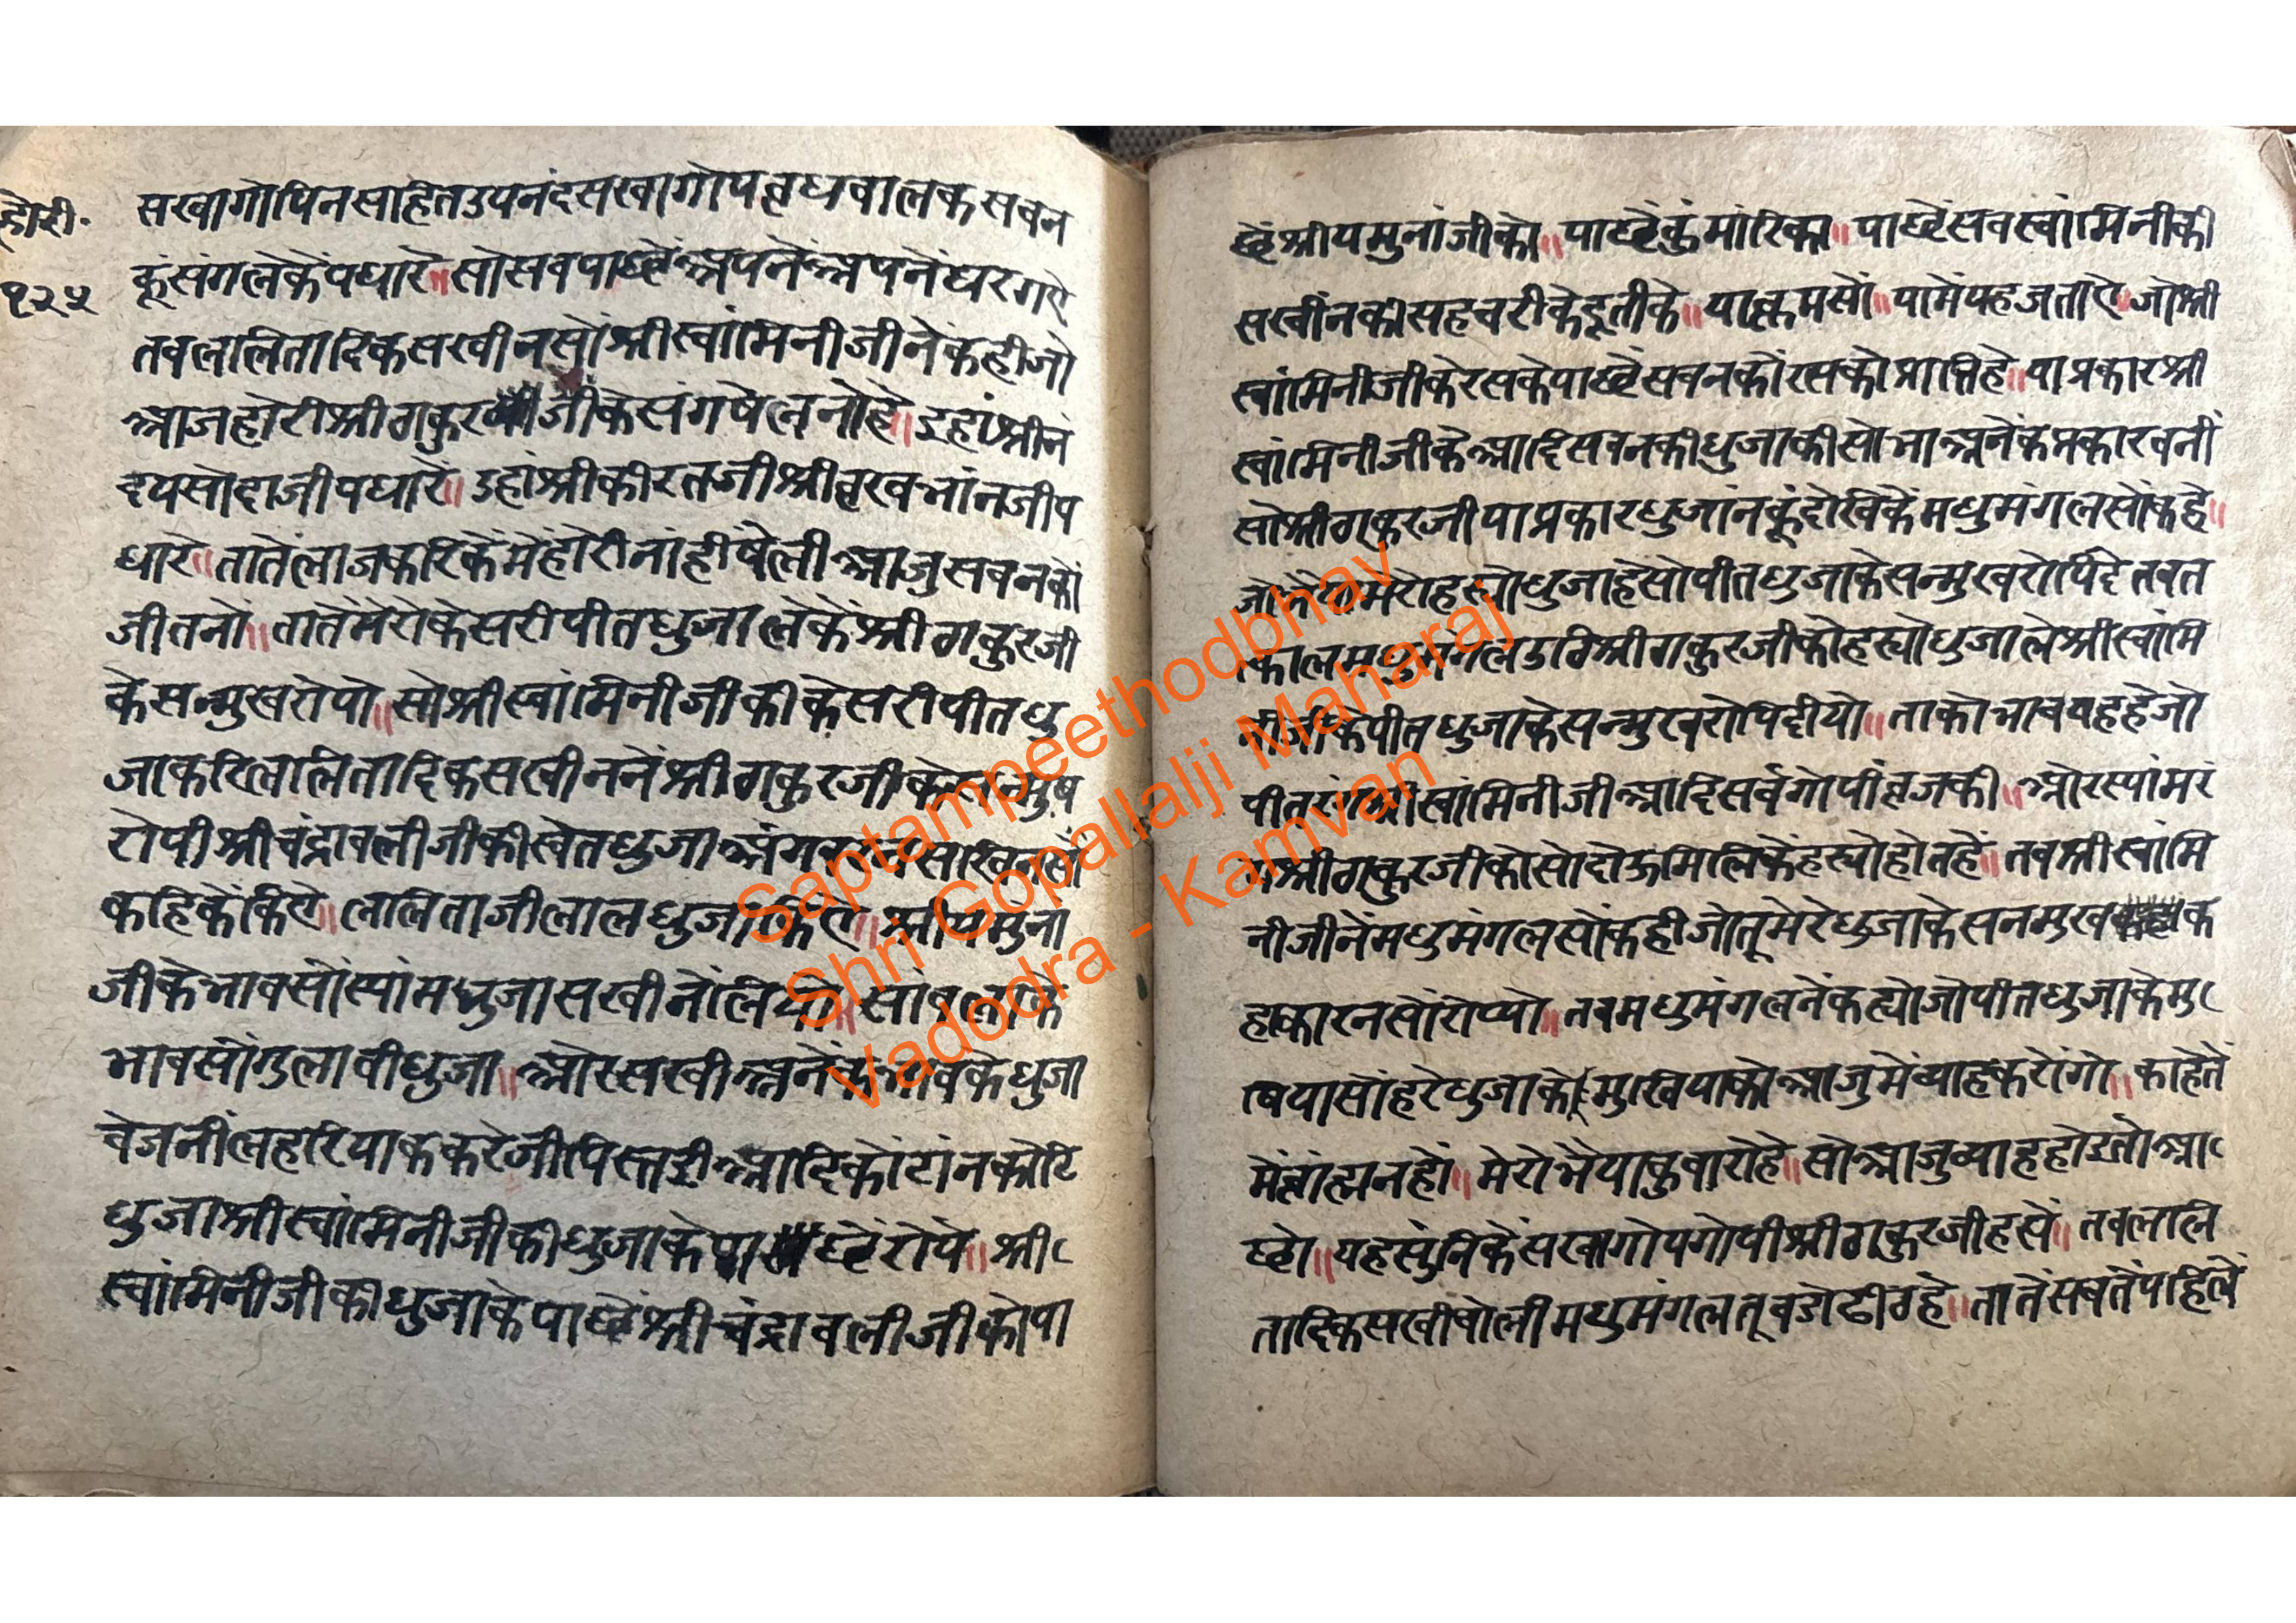 होरी.
१२५
सखागोपिनसहितउपनंदसखागोपवृधबालकसबन
कूंसंगलेकेंपधारे॥सोसबपाछेंअपनेंअपनेंघरगए
तबललितादिकसखीनसोंश्रीस्वांमिनीजीनेंकहीजो
आजहोरीश्रीठाकुरजीकेसंगषेलनोहै॥इहांश्रीनं
दयसोदाजीपधारें॥उहांश्रीकीरतजीश्रीवृखभांनजीप
धारे॥तातेंलाजकरिकेंमेंहोरीनांहींषेलीआजुसबनकों
जीतनो॥तातेंमेरोकेसरीपीतधुजालेकेंश्रीठाकुरजी
केसन्मुखरोपो॥सोश्रीस्वांमिनीजीकीकेसरीपीतधु
जाकरिललितादिकसखीननेंश्रीठाकुरजीकेसन्मुष
रोपीश्रीचंद्रावलीजीकीस्वेतधुजा
कहिकेंकिए॥ललिताजीलालधुजाकिए॥श्रीयमुंना
जीकेभावसोंस्यांमधुजासखीनोंलियो॥
भावसोंगुलाबीधुजा॥औरसखीअनेंकभावकेधुजा
बेजनींलहरियाककरेजीपिस्तईआदिकोटांनकोटि
धुजाश्रीस्वांमिनीजीकीधुजाकेपाछेंरोपे॥श्री
स्वांमिनीजीकीधुजाकेपाछेंश्रीचंद्रावलीजीकोपा
छेंश्रीयमुनांजीको॥पाछेंकुंमांरिका॥पाछेंसबस्वांमिनीकी
सखींनकीसहचरीकेदूतीके॥याक्रमसों॥यामेंयहजताए॥जोश्री
स्वांमिनीजीकेरसकेपाछेंसबनकोंरसकोप्राप्तिहे॥याप्रकारश्री
स्वांमिनीजीकेआदिसबनकीधुजाकीसोभाअनेंकप्रकारबनीं
सोश्रीठाकुरजीयाप्रकारधुजांनकूंदेखिकेंमधुमंगलसोंकहे॥
मेरोहस्योधुजाहेसोपीतधुजाकेसन्मुखरोपिदेतबत
त्कालमधुमंगलउठिश्रीठाकुरजीकोहस्योधुजालेश्रीस्वांमि
नीजीकेपीतधुजाकेसन्मुखरोपिदीयो॥ताकोभावयहहेजो
पीतरंगश्रीस्वांमिनीजीआदिसर्वगोपींवृजकी॥औरस्यांमरं
गश्रीठाकुरजीकोसोदोऊमिलिकेंहस्योहोतहें॥तबश्रीस्वांमि
नीजीनेंमधुमंगलसोंकहीजोतूमेरेधुजाकेसनमुखक
हाकारनसोंरोप्यो॥तबमधुमंगलनेंकह्योजोपीतधुजाकेमु
षियासोंहरेधुजाकोमुखियाकोआजुमेंव्याहकरोंगो॥काहेतें
मेंब्रांह्मनहों॥मेरोभैयाकुवारोहे॥सोआजुव्याहहोइतोआ
छो॥यहसुंनिकेंसखागोपगोपीश्रीठाकुरजीहसें॥तबललि
तादिकसखीबोलीमधुमंगलतूबडोढीठहे॥तातेंसबतेंपहिलें
Saptampeethodbhav
Shri Gopallalji Maharaj
Vadodra - Kamvan